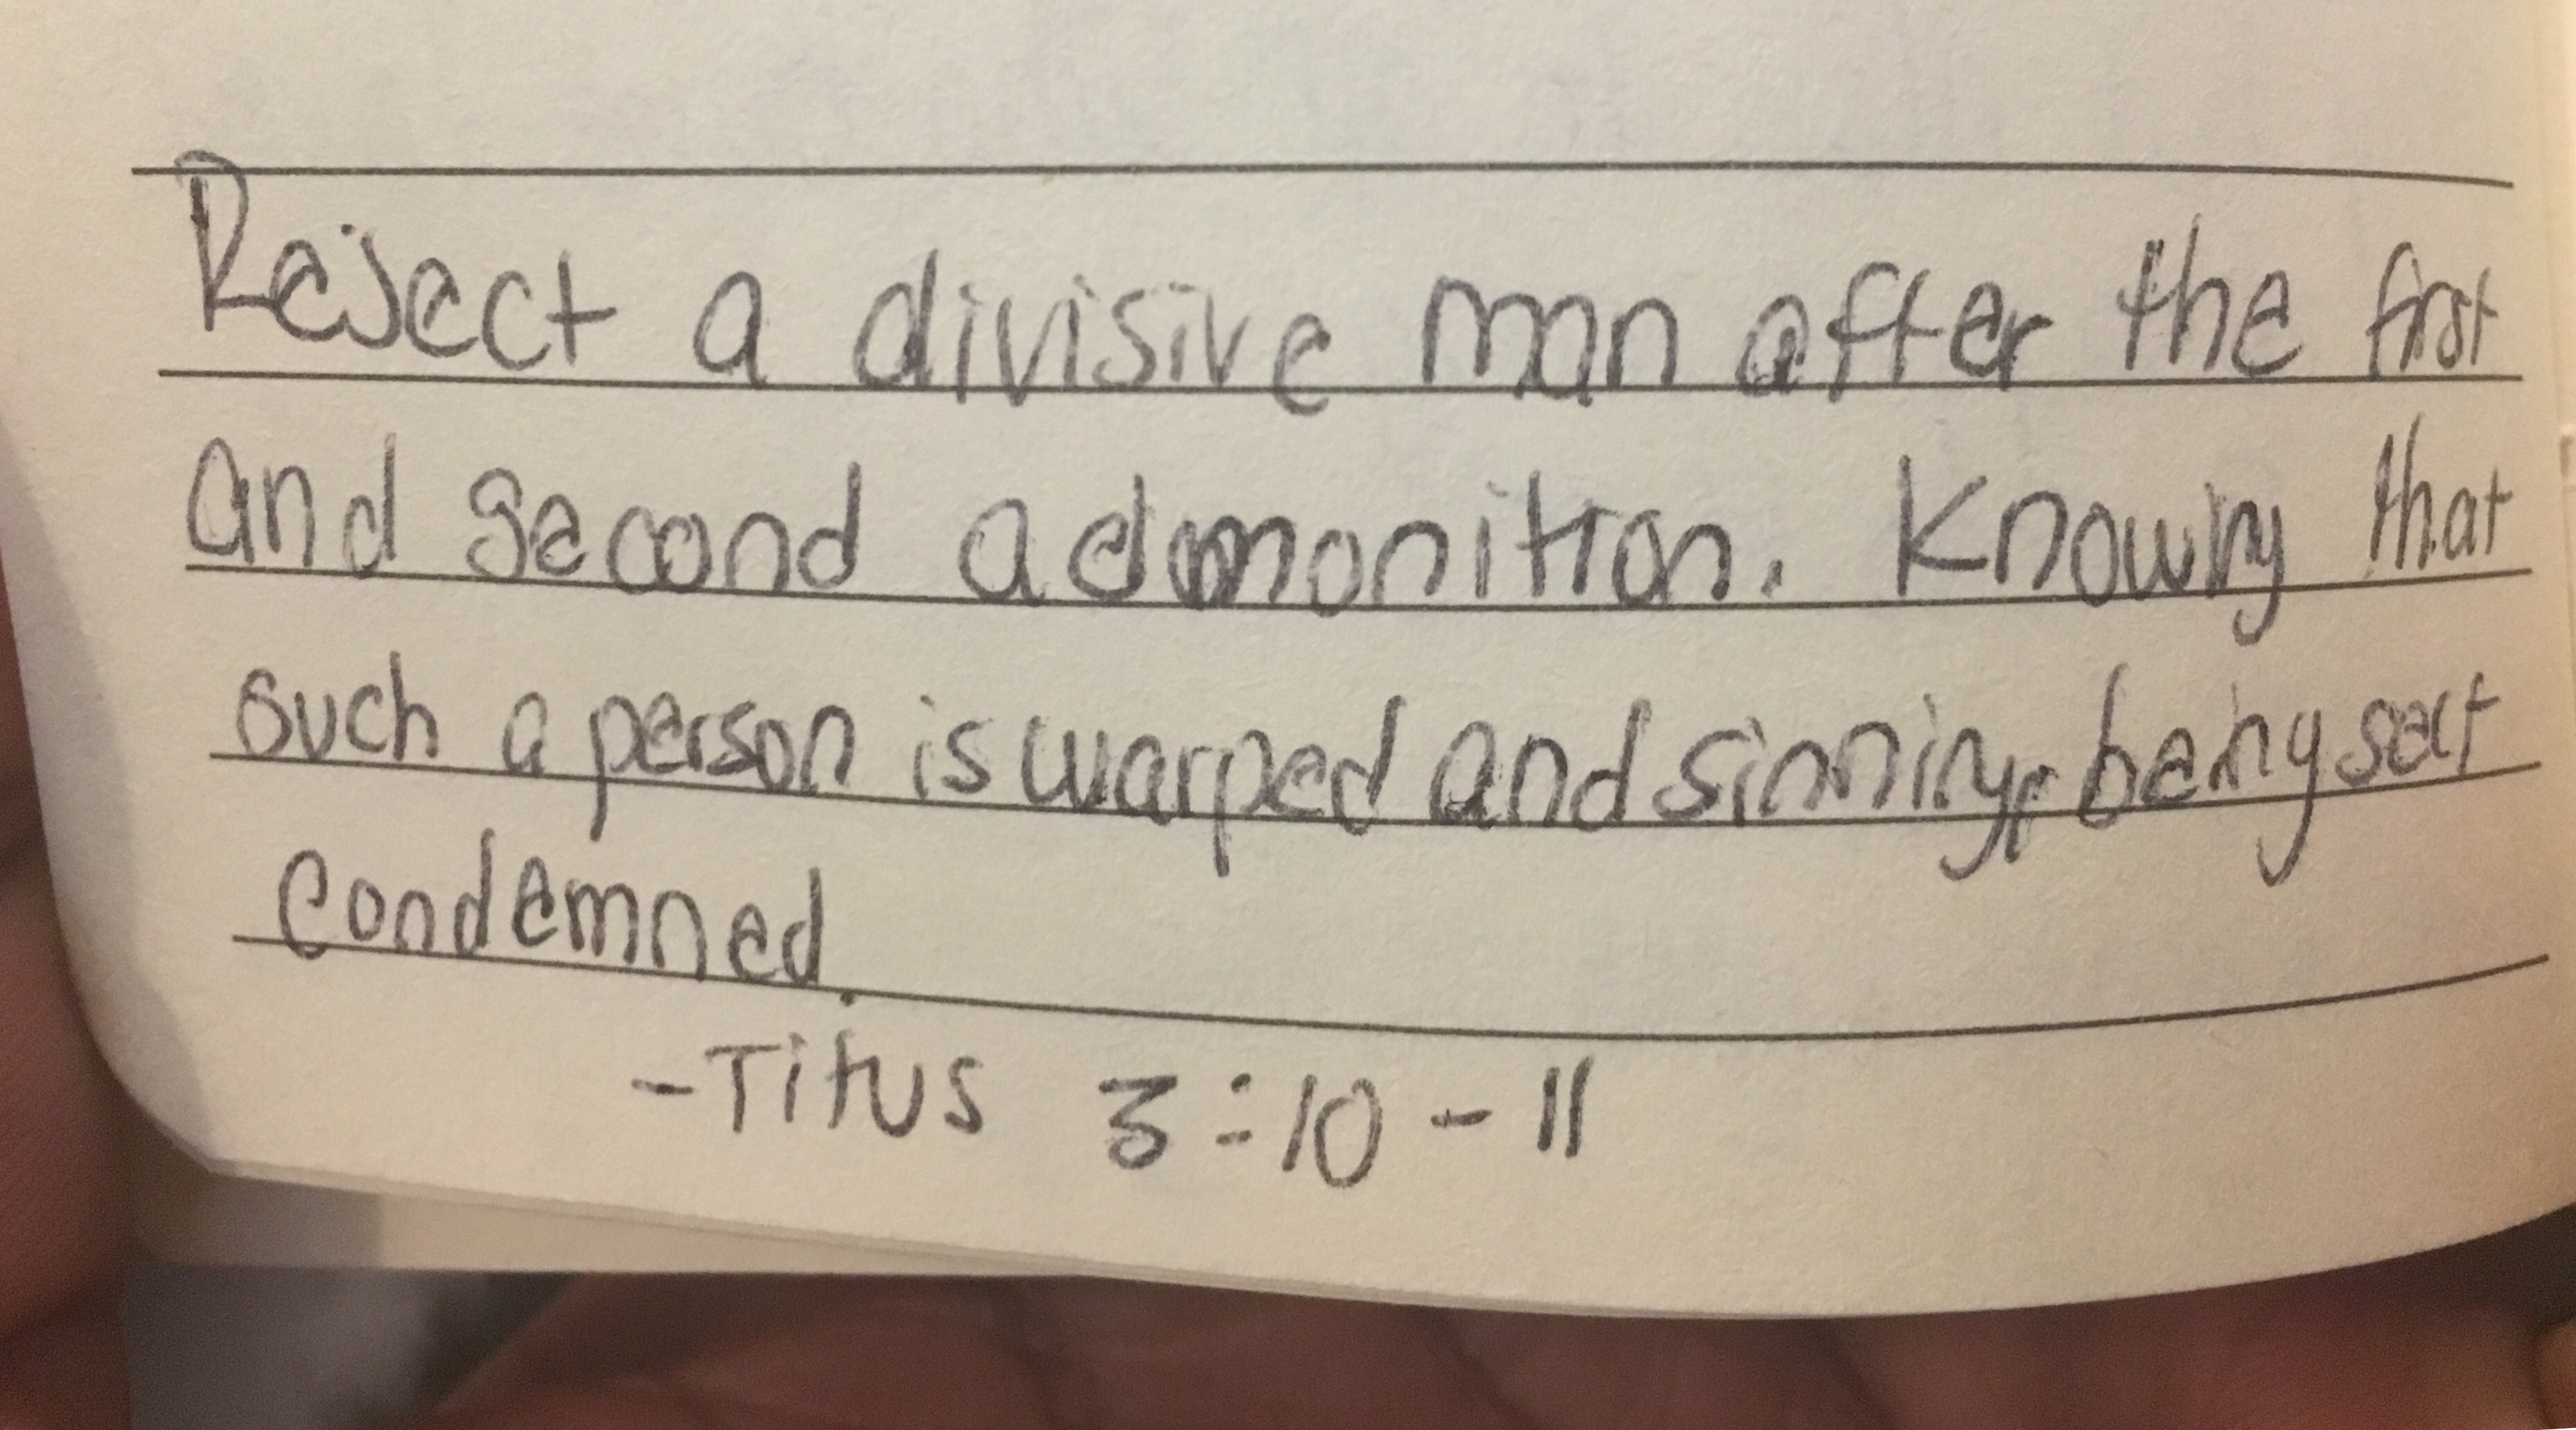 Reject a divisive man after the first
and second admonition. Knowing that
such a person is warped and sinning, being self
condemned.
-Titus 3:10-11